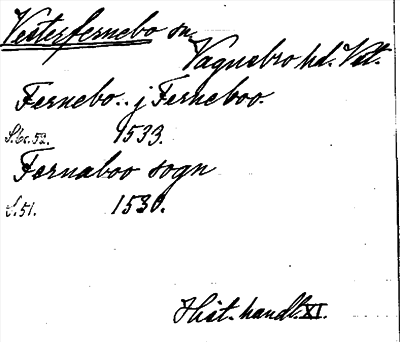 Vesterfernebo sn
Vagnsbro hd. Vstm.
Fernebo.. j Ferneboo.
S. 52. 1533.
Fernaboo sogn
S. 51. 1530.
Hist. handl. XI.